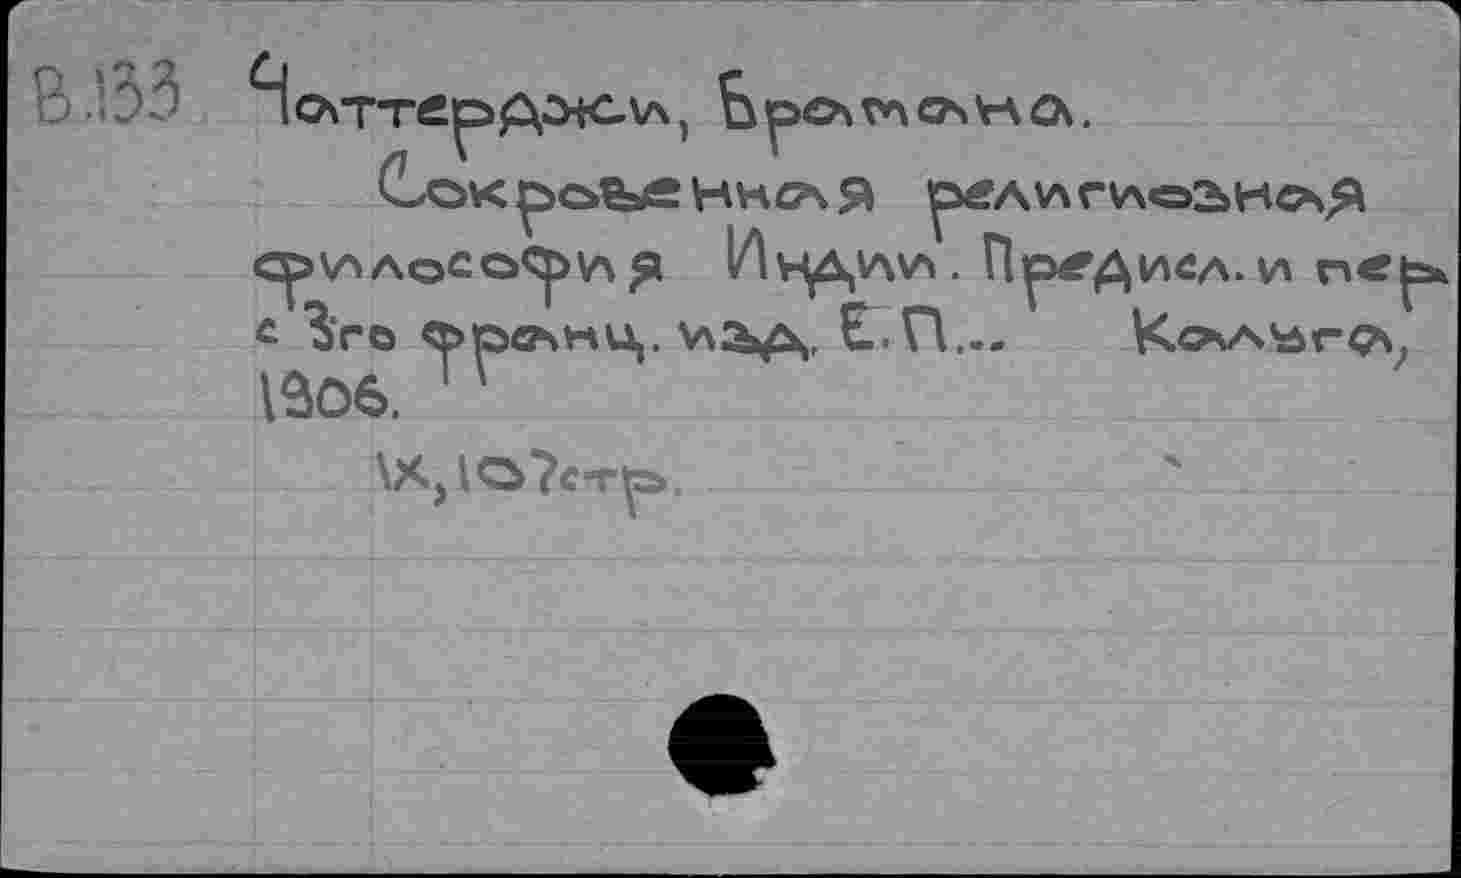 В.133 Чаттерджи, Брамана.
Сокровенная религиозная
философия Индии. Предисл. и пер.
с 3го франц. изд. Е.П... Калуга,
1906.
IX, 107стр.